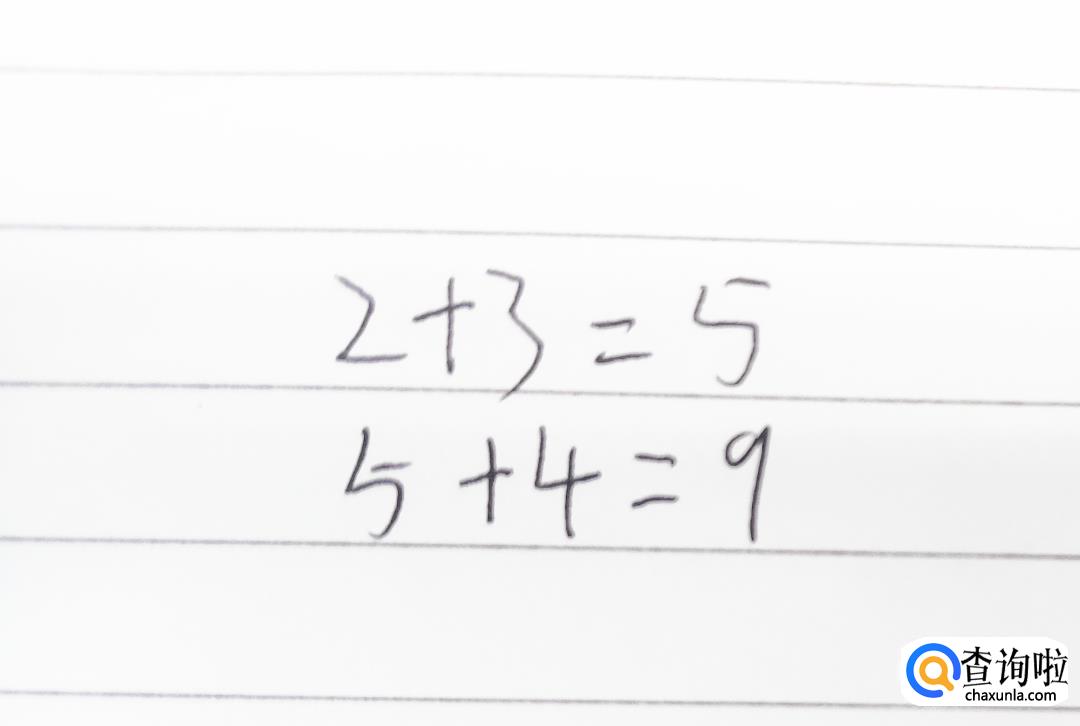 2+3=5
5+4=9
查询啦
chaxunla.com